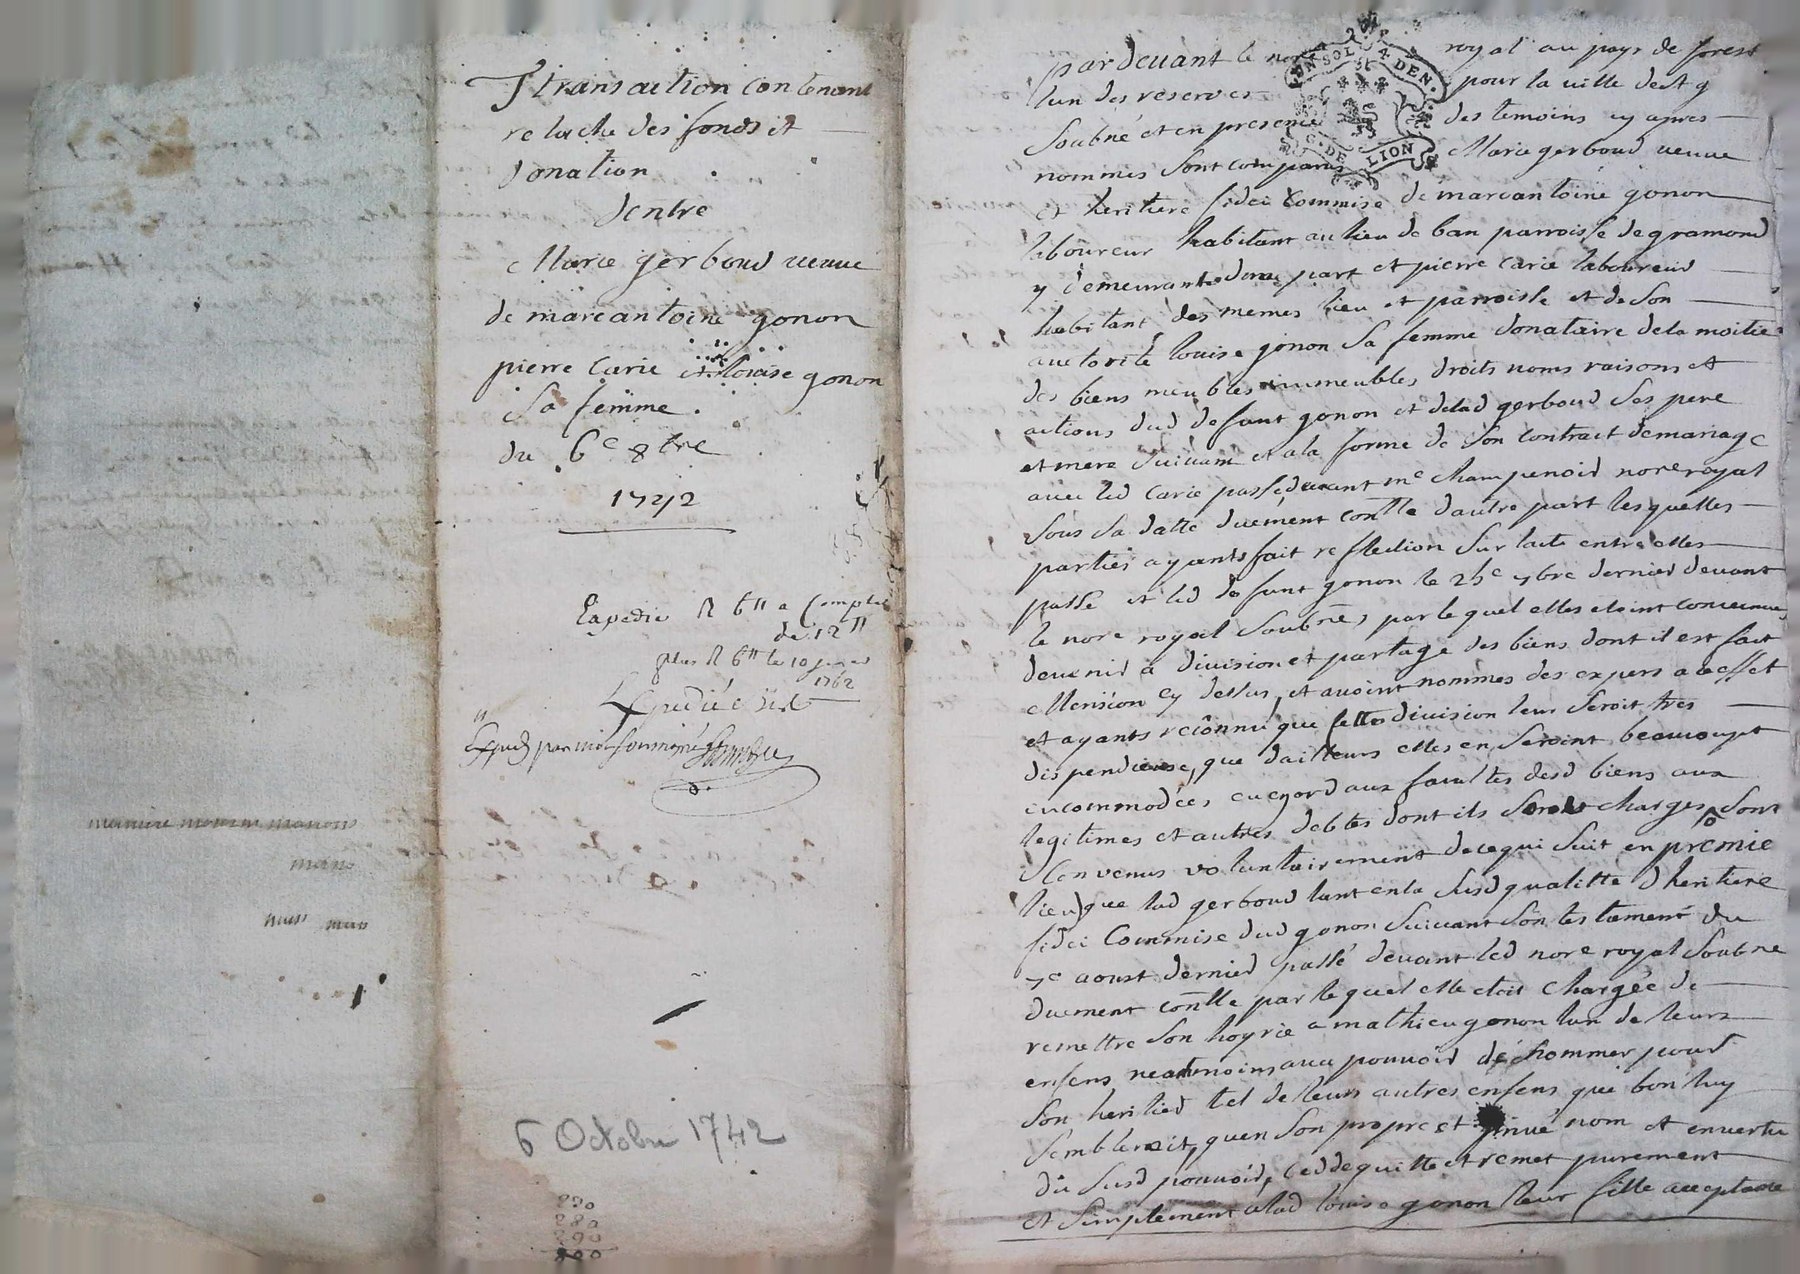 transaction contenant
relache des fonds et
donation
dentre
Marie gerboud veuve
de marcantoine gonon
pierre Carie et louise gonon
Sa femme.
du 6e 8bre
1742
Expedie R 6ll a Compte
de 12ll
plus R 6ll le 10
1762
Expediée
Exped par moi soussigné
6 Octobre 1742
pardevant le nore royal au pays de forest
lun des reserves pour la ville de St g
Soubné et en presence des temoins cy apres
nommes Sont comparus Marie gerboud veuve
et heritiere fidei Commise de marcantoine gonon
laboureur habitant au lieu de ban parroisse de gramond
y demeurante dune part et pierre carie laboureur
habitant des memes lieu et parroisse et de Son
auctorité louise gonon Sa femme donataire dela moitie
des biens meubles immeubles droits noms raisons et
actions dud defunt gonon et delad gerboud Ses pere
et mere Suivant et ala forme de Son contract demariage
avec led Carie passé devant me champenois nore royal
Sous Sa datte duëment conlle dautre part lesquelles
parties ayants fait reflection Sur lacte entre elles
passé et led defunt gonon le 7bre dernier devant
le nore royal Soubné, par lequel elles etoint convenues
devenir a division et partage des biens dont il est fait
Mension cy dessus, et avoint nommes des expers a ceteffet
et ayants reconnu que cette division leur Seroit tres
dispendieuse, que dailleurs elles en Seroint beaucoupt
encommodées eu egard aux facultes desd biens aux
legitimes et autres debtes dont ils Sont charges, Sont
Convenus volontairement de ce qui Suit en premie
lieu) que lad gerboud tant en la Susd qualitte dheritiere
fidei Commise dud gonon Suivant Son testament du
7e aoust dernier passé devant led nore royal Soubné
duement conlle par lequel elle etoit chargée de
remettre Son hoyrie a mathieu gonon lun de leurs
enfens neantmoins avec pouvoir de nommer pour
Son heritier tel de leurs autres enfens que bon luy
Sembleroit, quen Son propre et privé nom et envertu
du Susd pouvoir, cedde quitte et remet purement
et Simplement alad louise gonon leur fille acceptante